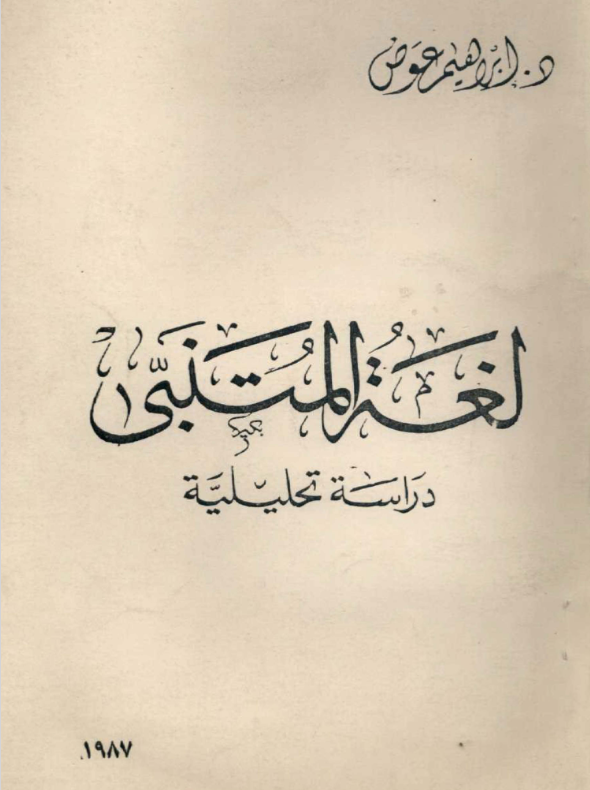 د. ابراهيم عوض
لغة المتنبى
دراسة تحليلية
١٩٨٧